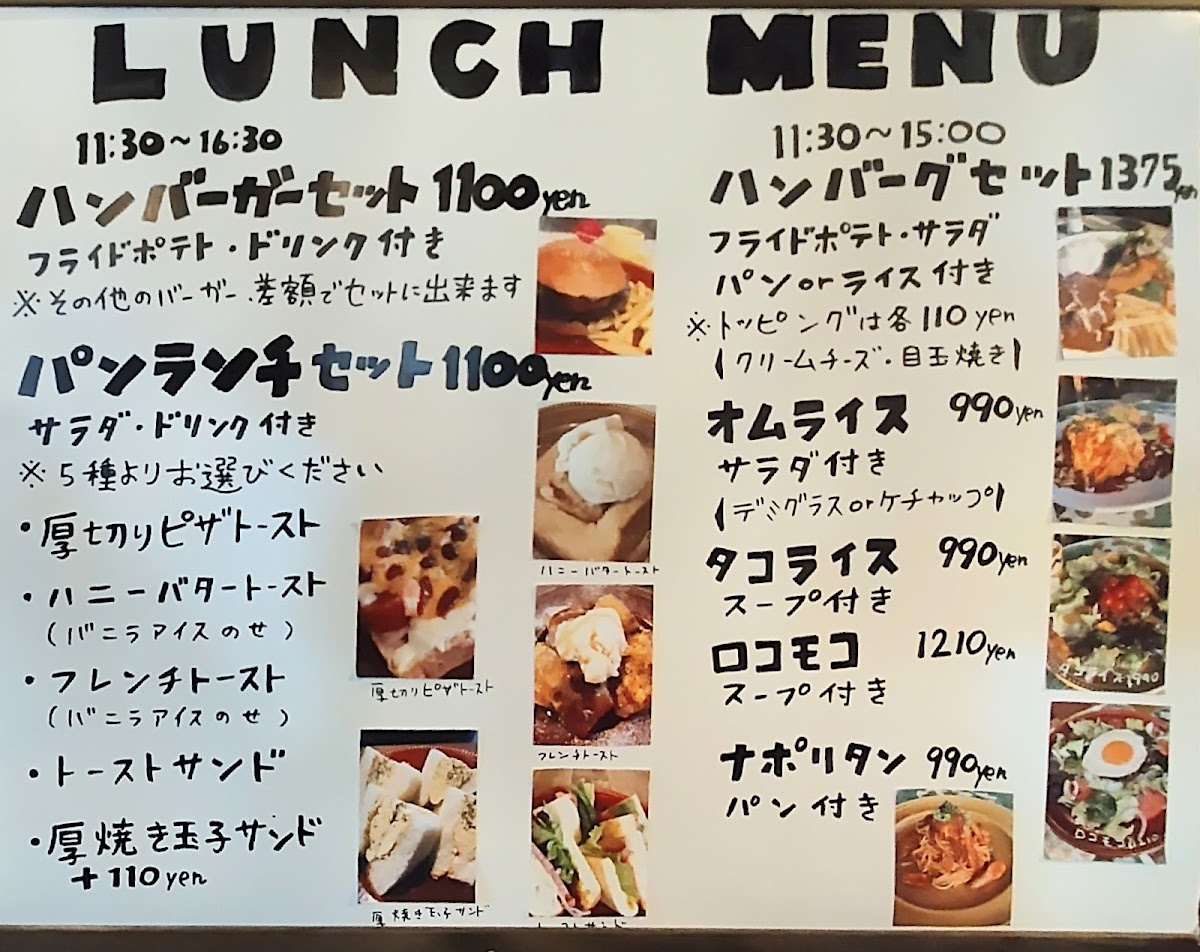 LUNCH MENU
11:30～16:30
ハンバーガーセット 1100yen
フライドポテト・ドリンク付き
※その他のバーガー、差額でセットに出来ます
パンランチセット 1100yen
サラダ・ドリンク付き
※5種よりお選びください
・厚切りピザトースト
・ハニーバタートースト
(バニラアイスのせ)
・フレンチトースト
(バニラアイスのせ)
・トーストサンド
・厚焼き玉子サンド
+110yen
厚切りピザトースト
厚焼き玉子サンド
ハニーバタートースト
フレンチトースト
トーストサンド
11:30～15:00
ハンバーグセット 1375yen
フライドポテト・サラダ
パンorライス付き
※トッピングは各110yen
(クリームチーズ・目玉焼き)
オムライス 990yen
サラダ付き
(デミグラスorケチャップ)
タコライス 990yen
スープ付き
ロコモコ 1210yen
スープ付き
ナポリタン 990yen
パン付き
タコライス990
ロコモコ1210